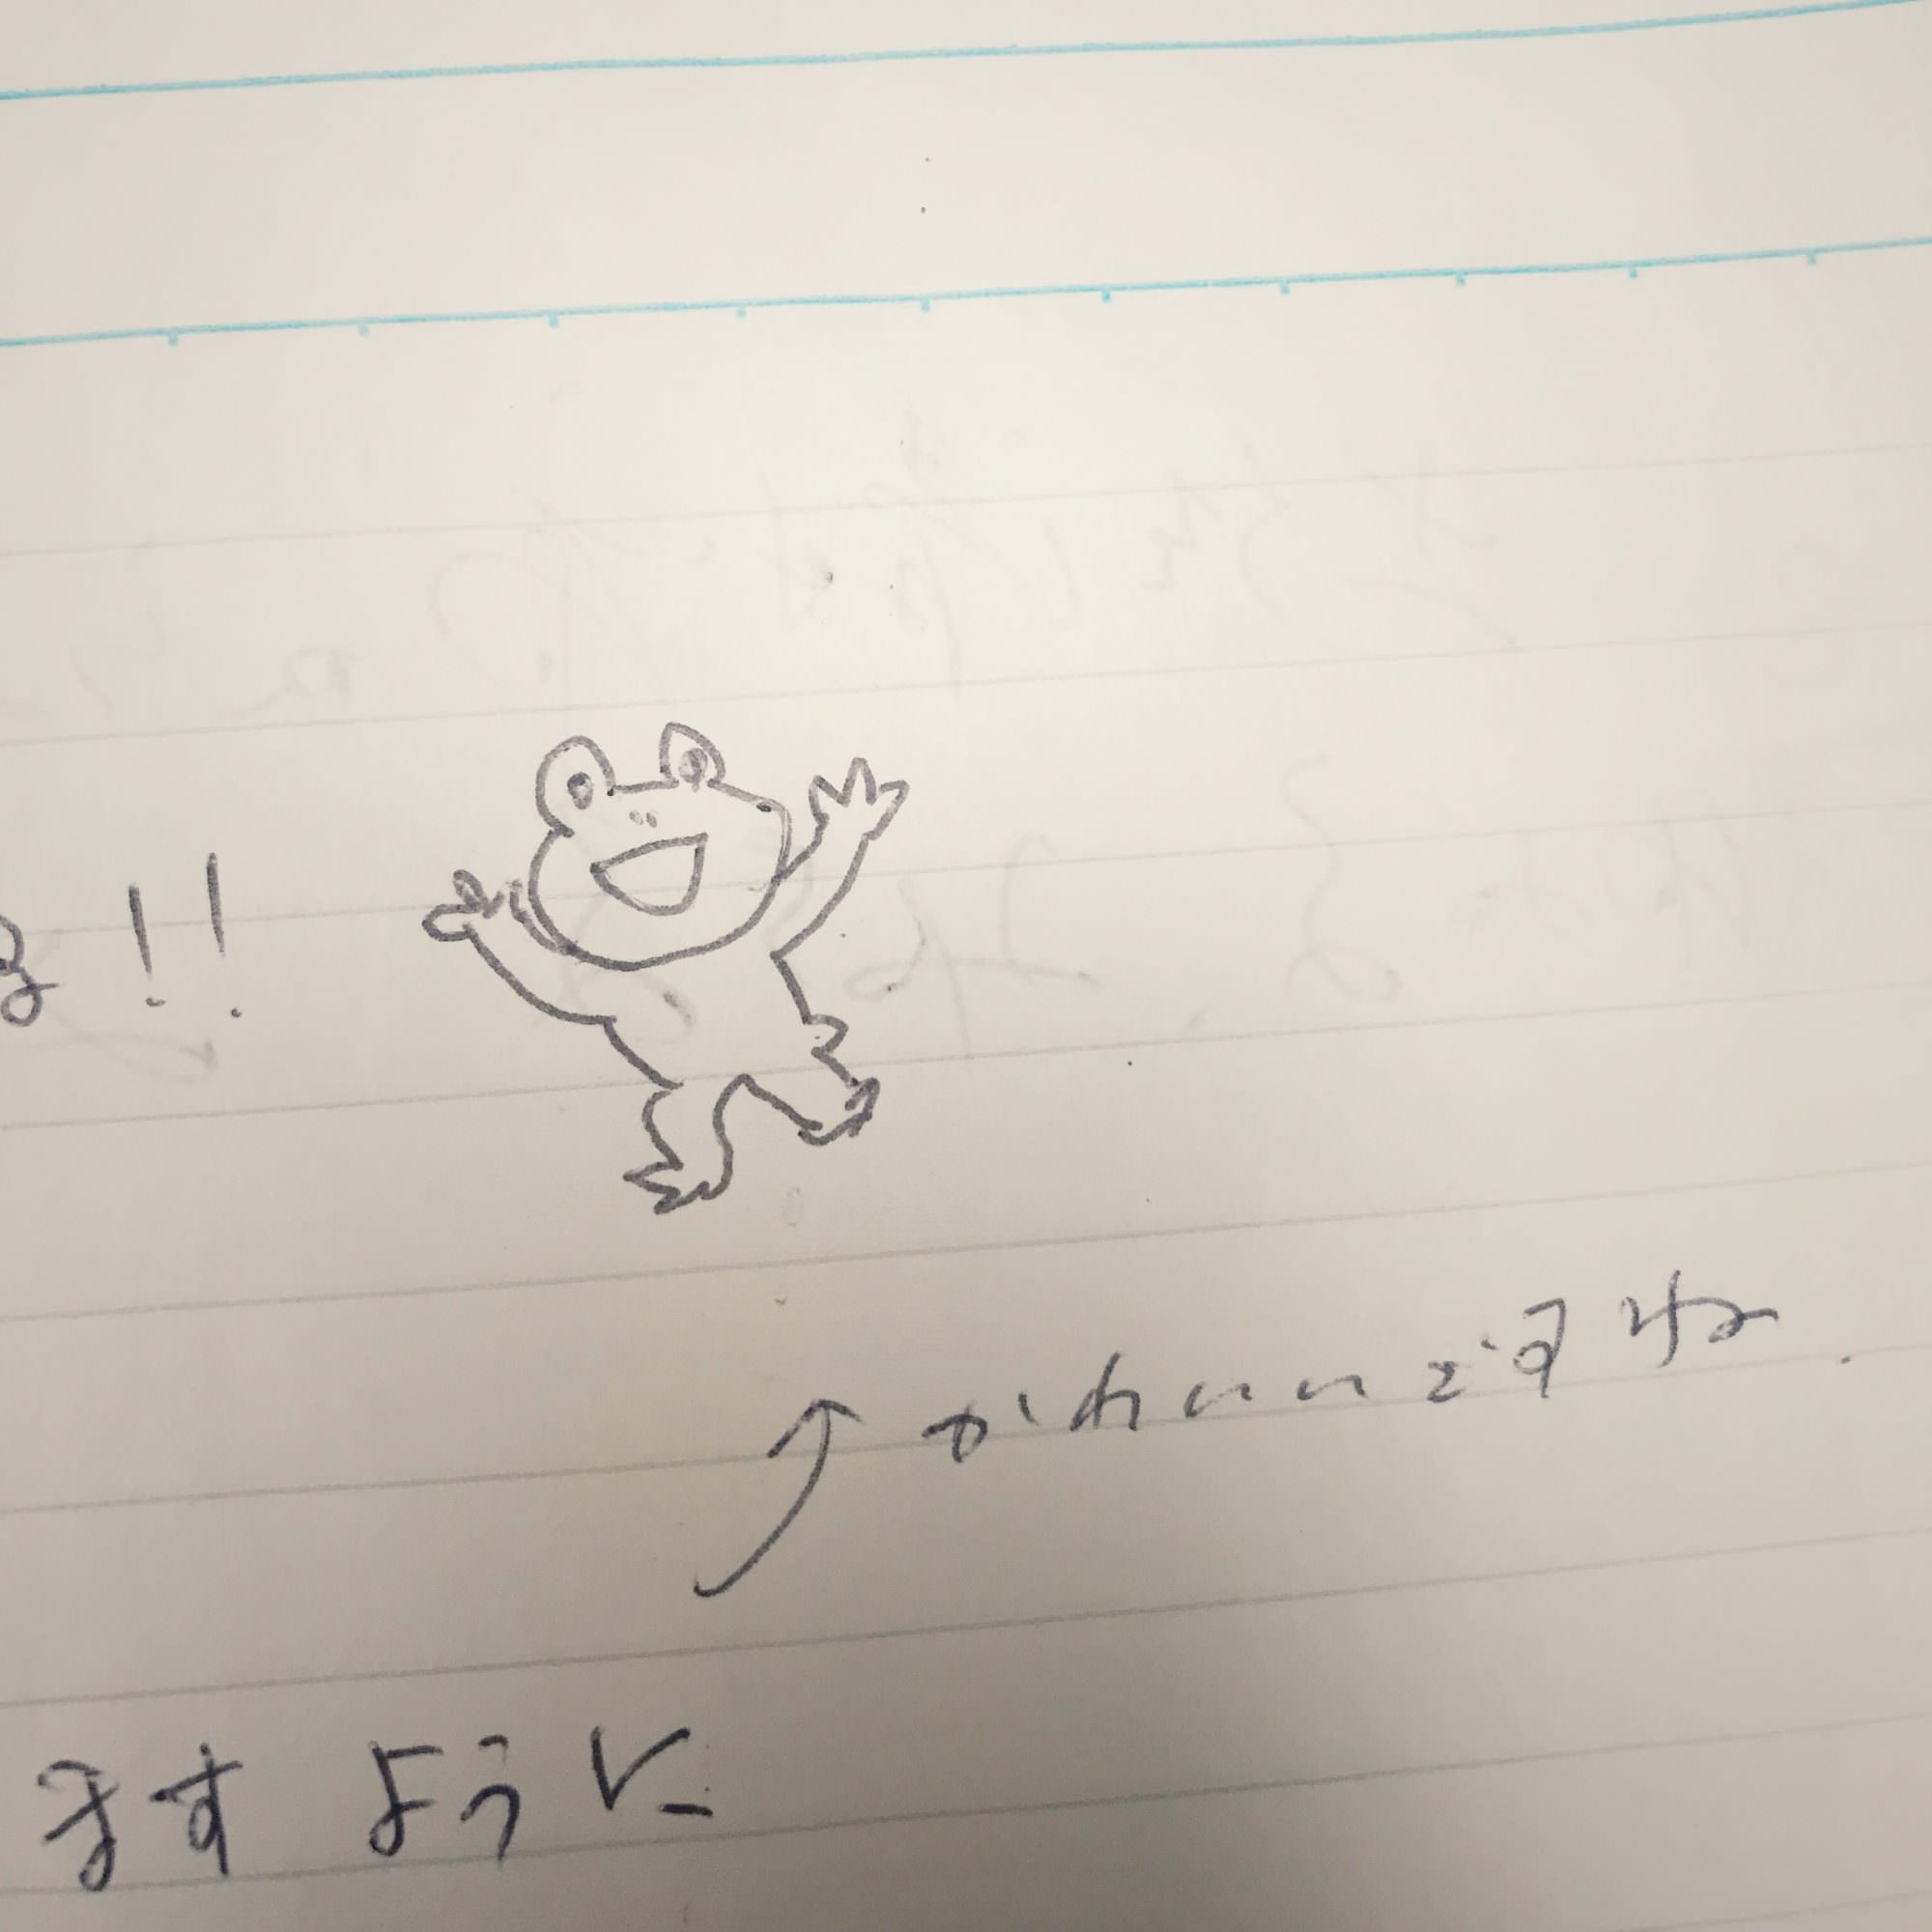 る!!
かわいいですね.
ますように